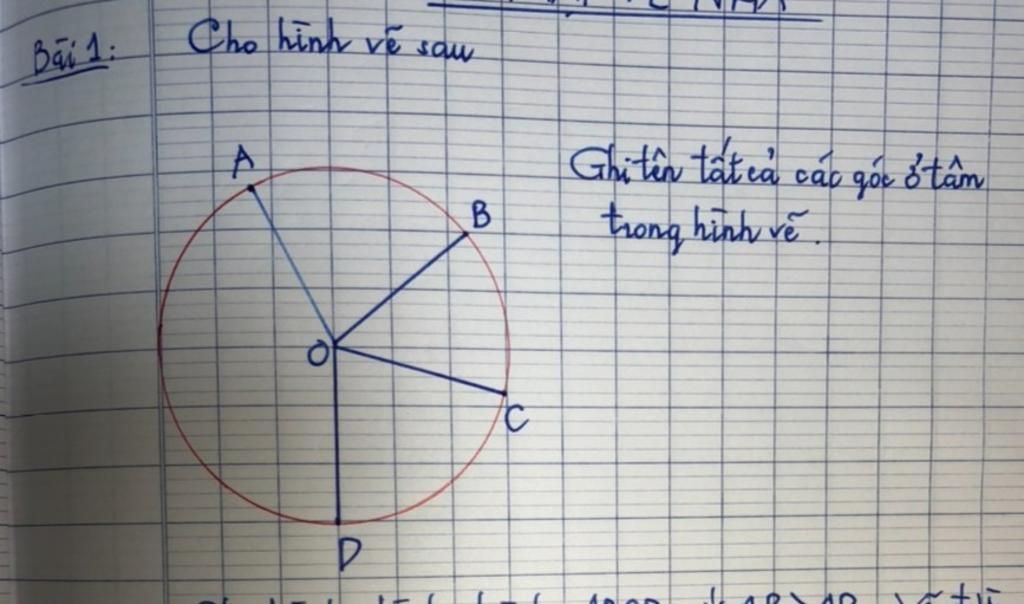 Bài 1: Cho hình vẽ sau
A
Ghi tên tất cả các góc ở tâm
B
trong hình vẽ.
O
C
D